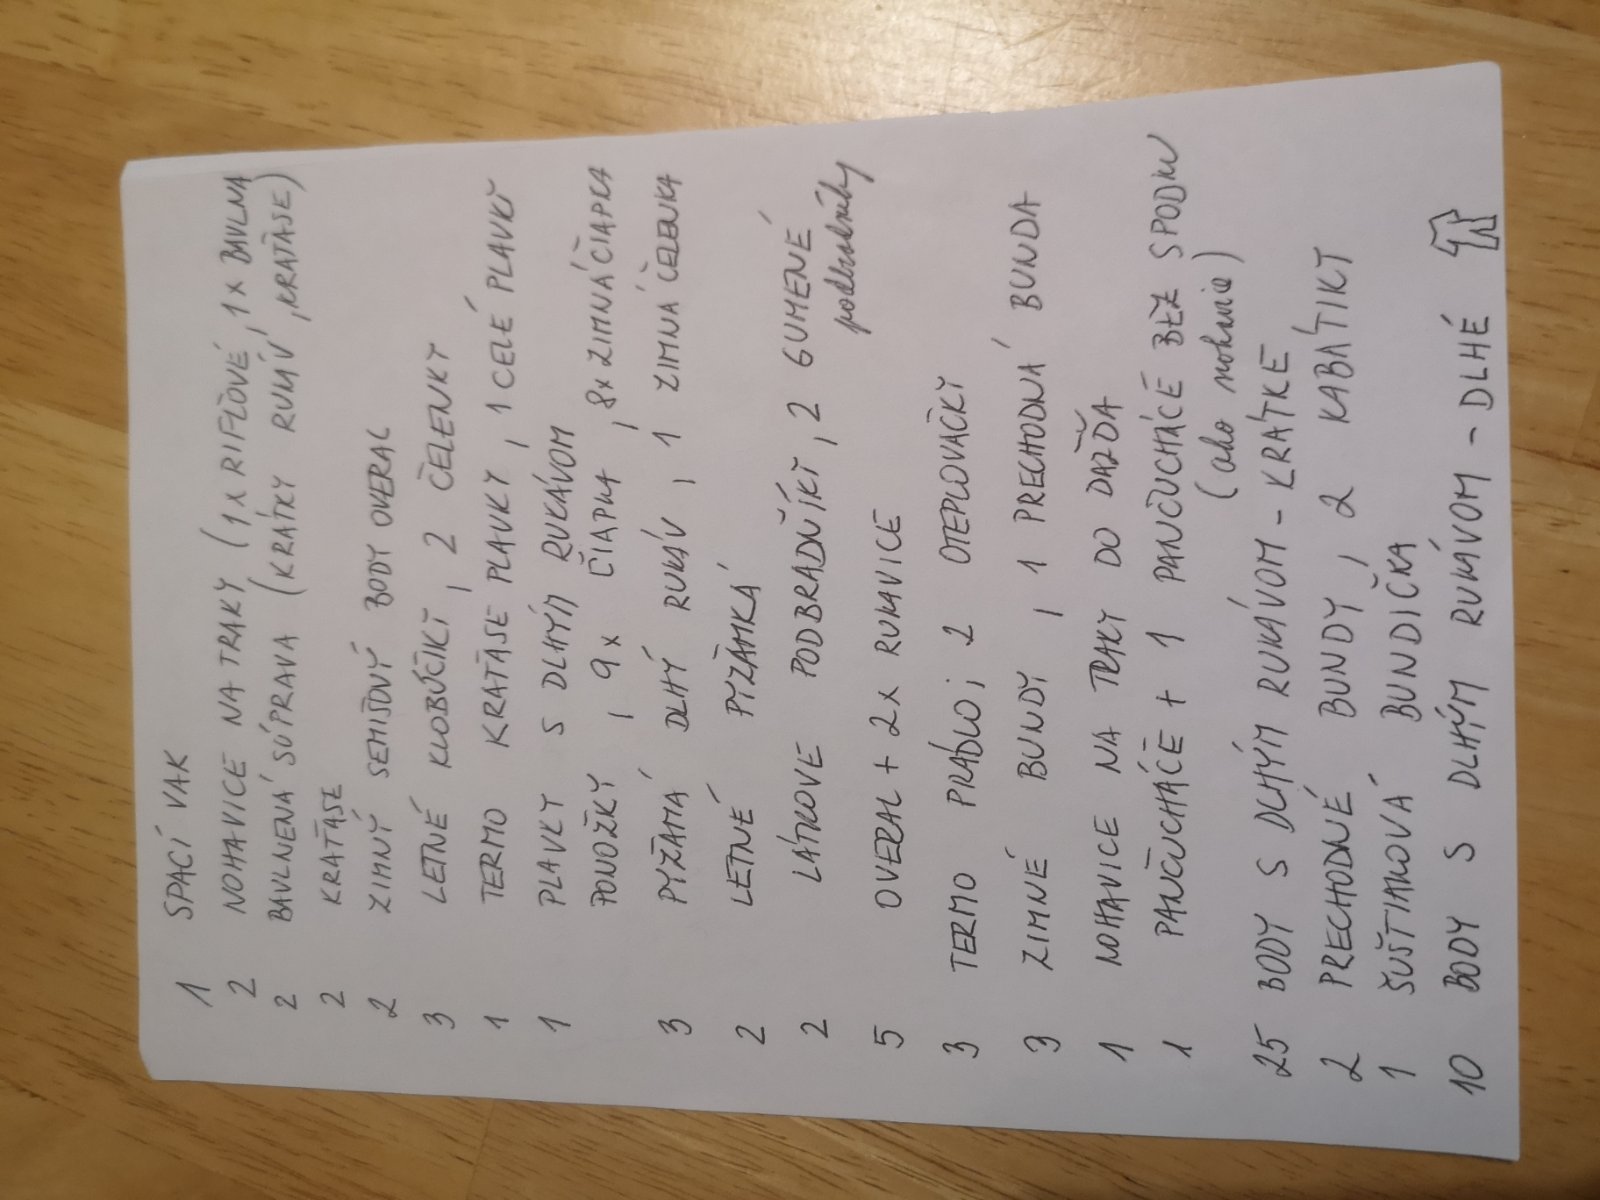 1 SPACÍ VAK
2 NOHAVICE NA TRAKY (1x RIFĽOVÉ, 1x BAVLNA
2 BAVLNENÁ SÚPRAVA (KRÁTKY RUKÁV, KRAŤASE)
2 KRAŤASE
2 ZIMNÝ SEMIŠOVÝ BODY OVERAL
3 LETNÉ KLOBÚČIKY, 2 ČELENKY
1 TERMO KRAŤASE PLAVKY, 1 CELÉ PLAVKY
1 PLAVKY S DLHÝM RUKÁVOM
PONOŽKY, 9x ČIAPKA, 8x ZIMNÁ ČIAPKA
3 PYŽAMÁ DLHÝ RUKÁV, 1 ZIMNÁ ČELENKA
2 LETNÉ PYŽAMKÁ
2 LÁTKOVE PODBRADNÍKY, 2 GUMENÉ
podbradníky
5 OVERAL + 2x RUKAVICE
3 TERMO PRÁDLO; 2 OTEPLOVAČKY
3 ZIMNÉ BUNDY, 1 PRECHODNÁ BUNDA
1 NOHAVICE NA TRAKY DO DAŽĎA
1 PANČUCHÁČE + 1 PANČUCHÁČE BEZ SPODKU
(ako nohavice)
25 BODY S DLHÝM RUKÁVOM - KRÁTKE
2 PRECHODNÉ BUNDY, 2 KABÁTIKY
1 ŠUŠTIAKOVÁ BUNDIČKA
10 BODY S DLHÝM RUKÁVOM - DLHÉ